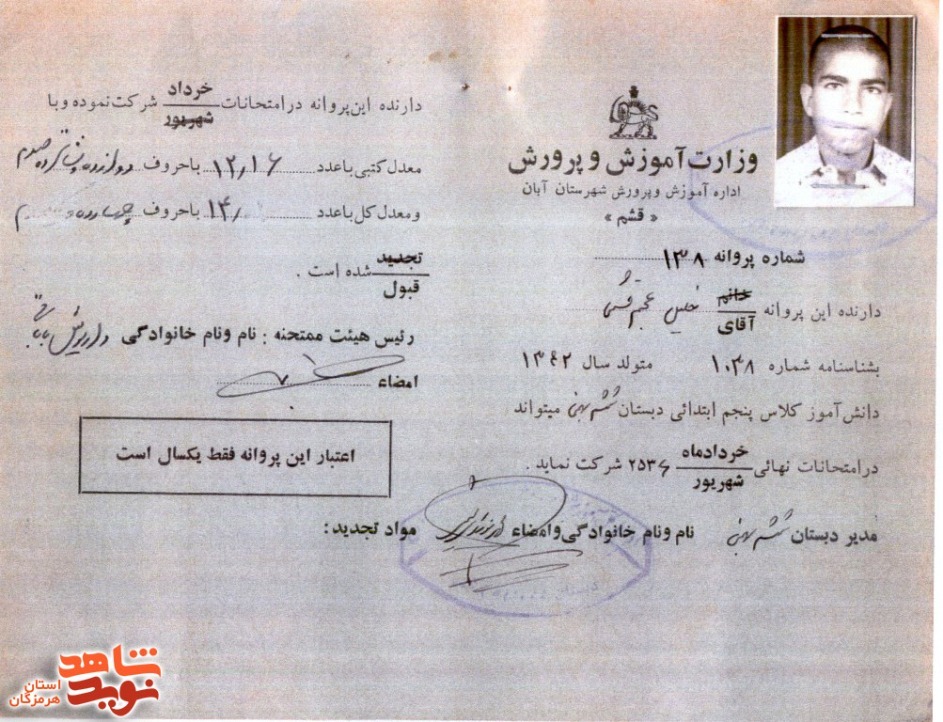 وزارت آموزش و پرورش
اداره آموزش و پرورش شهرستان آبان
« قشم »
شماره پروانه ۱۳۰۸
دارنده این پروانه خانم آقای خلیل عجم قشمی
بشناسنامه شماره ۱۰۳۸ متولد سال ۱۳۴۲
دانش آموز کلاس پنجم ابتدائی دبستان ششم بهمن میتواند
در امتحانات نهائی خردادماه شهریور ۲۵۳۶ شرکت نماید .
مدیر دبستان ششم بهمن نام و نام خانوادگی و امضاء
دارنده این پروانه در امتحانات خرداد شهریور شرکت نموده و با
معدل کتبی با عدد ۱۲٫۱۶ با حروف دوازده و شانزده صدم
و معدل کل با عدد ۱۴٫ با حروف چهارده
تجدید قبول شده است .
رئیس هیئت ممتحنه : نام و نام خانوادگی داریوش بابا
امضاء
اعتبار این پروانه فقط یکسال است
مواد تجدید :
نوید شاهد
استان هرمزگان